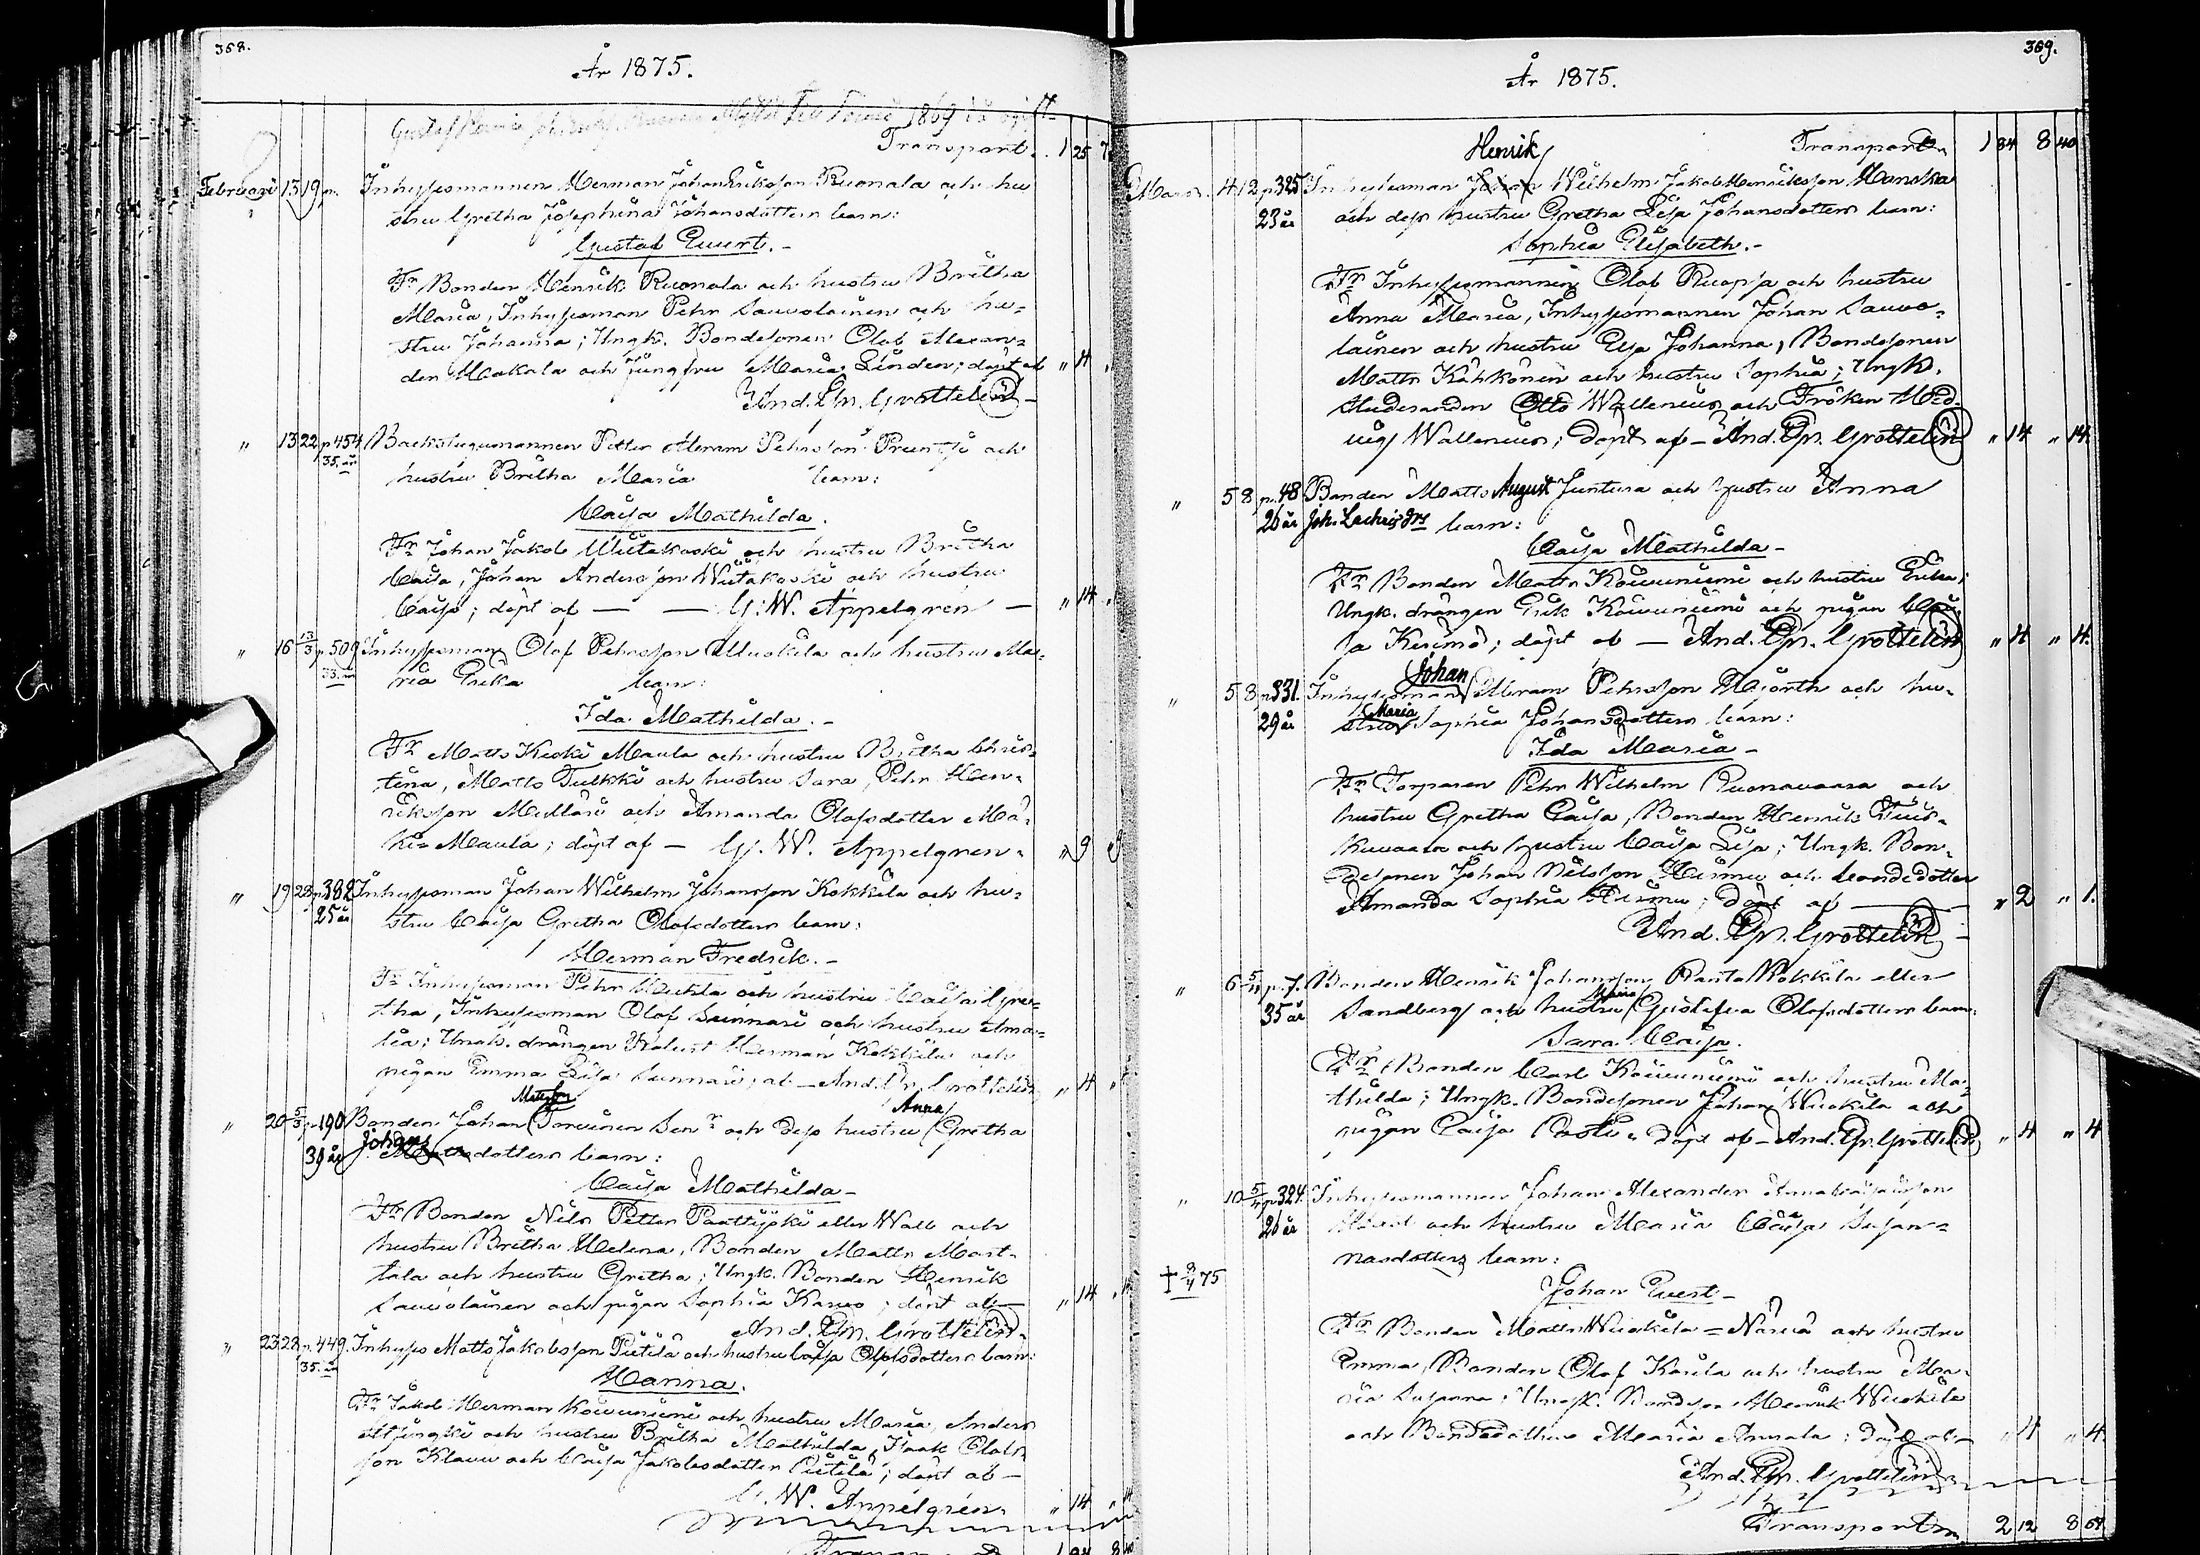 368.
År 1875.
1869
Transport. 1 25
Februari 13 19 p. Inhysesmannen Herman Johan Eriksson Ruonala och hu
stru Gretha Josephina Johansdotters barn:
Gustaf Evert.
Fr. Bonden Henrik Ruonala och hustru Britha
Maria, Inhysesman Pehr Sauvolainen och hu-
stru Johanna; Ungk. Bondesonen Olof Alexan-
der Makala och jungfru Maria Linden; döpt af " 4
And. Gr. Grottelin
" 13 22 p 454 Backstugumannen Petter Abram Pehrsson och
35. år hustru Britha Maria barn:
Caisa Mathilda.
Fr. Johan Jakob Wiitakoski och hustru Britha
Caisa, Johan Andersson Wiitakoski och hustru
Caisa; döpt af — — G. W. Appelgren — " 14
" 16 13/3 p. 509 Inhysesman Olof Pehrsson och hustru Ma-
33. år ria Erika barn:
Ida Mathilda.
Fr. Matts Keski Maula och hustru Britha Chris-
tina, Matts Tulkki och hustru Sara, Pehr Hen-
riksson och Amanda Olofsdotter Mä-
ki-Maula; döpt af — G. W. Appelgren " 9
" 19 28 p 382 Inhysesman Johan Wilhelm Johansson Kokkila och hu-
25 år stru Caisa Gretha Olofsdotters barn:
Herman Fredrik.
Fr. Inhysesman Pehr och hustru Caisa Gre-
tha, Inhysesman Olof Sunnari och hustru Ama-
lia; Ungk. drängen Herman Kokkila och
pigan Emma Lisa Sunnari; af — And. Gr. Grottelin " 4
Mattsson Anna
" 20 5/3 p. 190 Bonden Johan Torvinen Sen.r och dess hustru Gretha
39 år Johans dotters barn:
Caisa Mathilda
Fr. Bonden Nils Petter Paattijoki eller Wall och
hustru Britha Helena, Bonden Matts Mart-
tala och hustru Gretha; Ungk. Bonden Henrik
Sauvolainen och pigan Sophia Karvo; döpt af " 14
And. Gr. Grottelin
" 23 28 p. 449. Inhyses Matts Jakobsson Piitilä och hustru Caisa Olofsdotters barn:
35. år Hanna.
Fr. Jakob Herman Koivuniemi och hustru Maria, Anders
och hustru Britha Mathilda, Isaak Olofs-
son Klavu och Caisa Jakobsdotter Piitilä; döpt af —
G. W. Appelgren. " 14
369.
År 1875.
Henrik Transport 1 34 8 40
Mars. 4 12 p 325 Inhysesman Johan Wilhelm Jakob Henriksson Hanska
23 år och dess hustru Gretha Lisa Johansdotters barn:
Sophia Elisabeth.
Fr. Inhysesmannen Olof Ruopsa och hustru
Anna Maria, Inhysesmannen Johan Sauvo-
lainen och hustru Elsa Johanna, Bondesonen
Matts Kähkönen och hustru Sophia; Ungk.
Studeranden Otto Wallenius och Fröken Hed-
vig Wallenius; döpt af — And. Gr. Grottelin " 14 " 14.
" 5 8 p. 48 Bonden Matts August Juntura och hustru Anna
26 år Joh. Zachris drs barn:
Caisa Mathilda
Fr. Bonden Matts Koivuniemi och hustru Erika;
Ungk. drängen Erik Koivuniemi och pigan Cai-
sa Kerimö; döpt af — And. Gr. Grottelin " 4 " 4.
Johan
" 5 8 p 331. Inhysesman Abram Pehrsson Hjorth och hu-
29 år stru Maria Sophia Johansdotters barn:
Ida Maria
Fr. Torparen Pehr Wilhelm Ruonavaara och
hustru Gretha Caisa, Bonden Henrik
kuvaara och hustru Caisa Lisa; Ungk. Bon-
desonen Johan Nilsson Hirmu och bondedotter
Amanda Sophia Hirmu; döpt af — " 2 " 1.
And. Gr. Grottelin
" 6 5/4 p. 7. Bonden Henrik Johansson Ranta Wokkila eller
35 år Sandberg och hustru Maria Gustafva Olofsdotters barn:
Sara Caisa.
Fr. Bonden Carl Koivuniemi och hustru Ma-
thilda; Ungk. Bondesonen Johan Wuokila och
pigan Caisa Rosti; döpt af — And. Gr. Grottelin " 4 " 4
" 10 5/4 p 324. Inhysesmannen Johan Alexander
26 år och hustru Maria Caisa Susan-
nasdotters barn:
+ 3/4 75
Johan Evert
Fr. Bonden Matts Wuokila-Näriä och hustru
Emma, Bonden Olof Karila och hustru Ma-
ria Susanna; Ungk. Bondeson Henrik Wuokila
och Bondedotter Maria Annala; döpt af " 4 " 4.
And. Gr. Grottelin
Transport 2 12 8 67